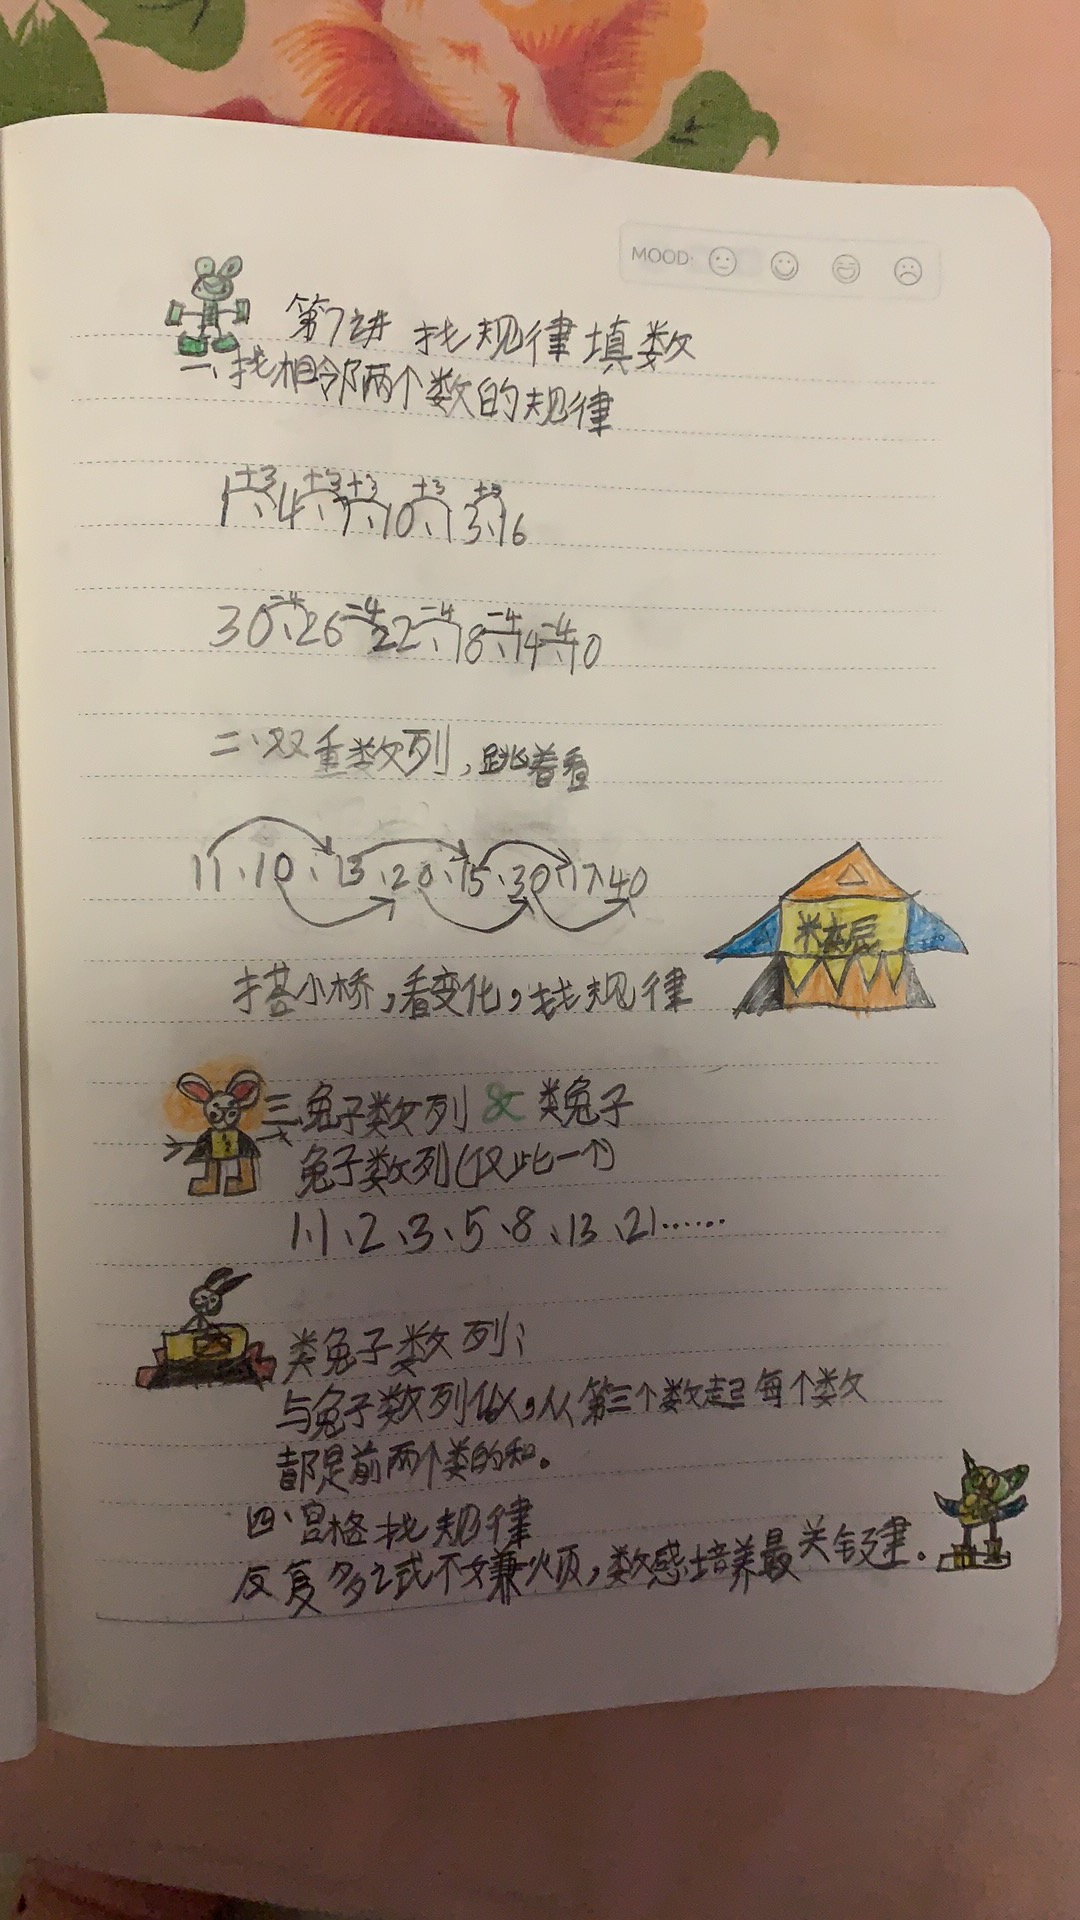 MOOD:
第7讲 找规律填数
一、找相邻两个数的规律
+3 +3 +3 +3 +3
1、4、7、10、13、16
-4 -4 -4 -4 -4
30、26、22、18、14、10
二、双重数列,跳着看
11、10、13、20、15、30、17、40
搭小桥,看变化,找规律
三、兔子数列 & 类兔子
兔子数列(仅此一个)
1、1、2、3、5、8、13、21……
类兔子数列:
与兔子数列似,从第三个数起每个数
都是前两个类的和。
四、宫格找规律
反复多试不嫌烦,数感培养最关键。